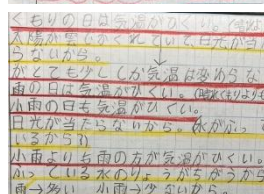 くもりの日は気温がひくい。
太陽が雲でかくれていて、日光が当た
らないから。
がとても少ししか気温は変わらな
雨の日は気温がひくい。
小雨の日も気温ひくい。
日光が当たらないから。水がふって
いるから
小雨よりも雨の方が気温がひくい。
ふっている水のりょうがちがうから
雨→多い 小雨→少ないから。